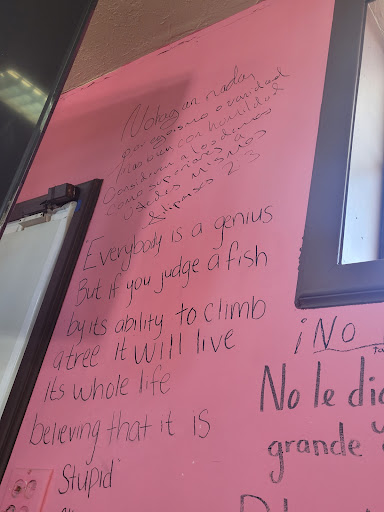 No hagan nada
por egoismo o vanidad
mas bien con humildad
Consideren a los demas
como superiores a
ustedes mismos
filipenses 2 3
Everybody is a genius
But if you judge a fish
by its ability to climb
a tree It will live
Its whole life
believing that it is
Stupid
¡No
No le di
grande